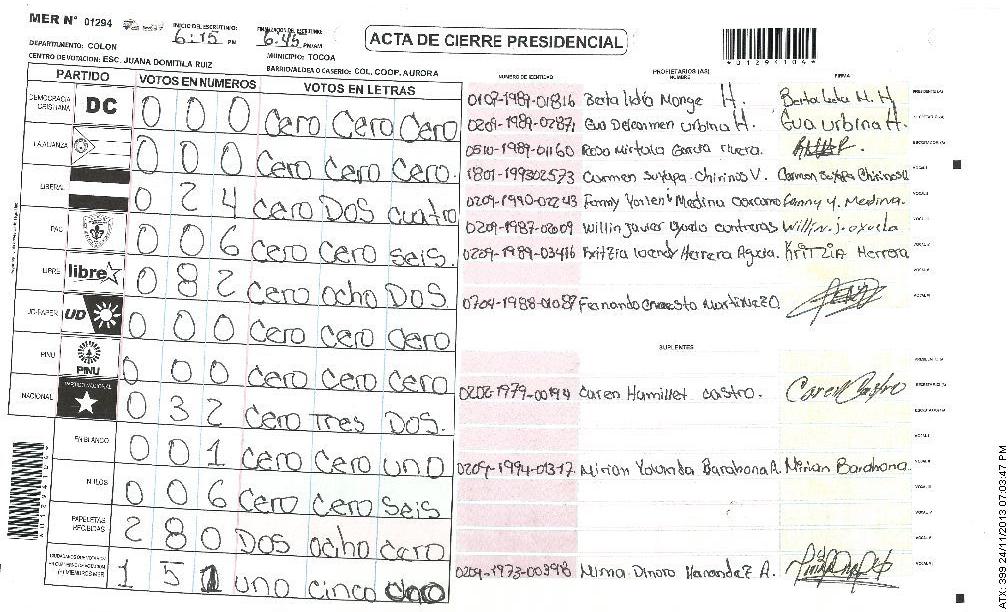 MER N° 01294
INICIO DEL ESCRUTINIO: 6:15 PM
FINALIZACION DEL ESCRUTINIO: 6:45 PM/AM
ACTA DE CIERRE PRESIDENCIAL
*01294104*
DEPARTAMENTO: COLON
MUNICIPIO: TOCOA
CENTRO DE VOTACION: ESC. JUANA DOMITILA RUIZ
BARRIO/ALDEA O CASERIO: COL. COOP. AURORA
PARTIDO VOTOS EN NUMEROS VOTOS EN LETRAS
DEMOCRACIA CRISTIANA DC 0 0 0 cero cero cero
LA ALIANZA 0 0 0 cero cero cero.
LIBERAL 0 2 4 cero DOS cuatro
PAC 0 0 6 cero cero seis.
LIBRE libre 0 8 2 cero ocho DOS
UD-FAPER UD 0 0 0 cero cero cero
PINU PINU 0 0 0 cero cero cero
NACIONAL PARTIDO NACIONAL 0 3 2 cero Tres DOS.
EN BLANCO 0 0 1 cero cero uno
NULOS 0 0 6 cero cero seis
PAPELETAS RECIBIDAS 2 8 0 DOS ocho cero
1 5 1 uno cinco
NUMERO DE IDENTIDAD
PROPIETARIOS (AS)
NOMBRE
FIRMA
0107-1989-01816 Berta lidia Monge H. Berta Lidia M. H
0209-1989-02871 Eva Delcarmen urbina H. Eva urbina H.
0510-1989-01160 Rosa Mirtala Garcia rivera.
1801-199302573 Carmen suyapa Chirinos V. Carmen Suyapa Chirinos V
0209-1990-02243 Fanny Yorleni Medina carcamo Fanny y. Medina.
0209-1987-02609 Willin javier contreras Willin j.
0209-1989-03416 Kritzia Wendy Herrera Aguila. KRITZIA Herrera
0704-1988-01087 Fernando ernesto martinez O
SUPLENTES
0202-1979-00194 Caren Hamillet castro. Caren Castro
0209-1994-01317 Mirian Yolanda Barahona A. Mirian Barahona.
0209-1973-00398 Mirna Dinora Hernandez A.
ATX: 399 24/11/2013 07:03:47 PM